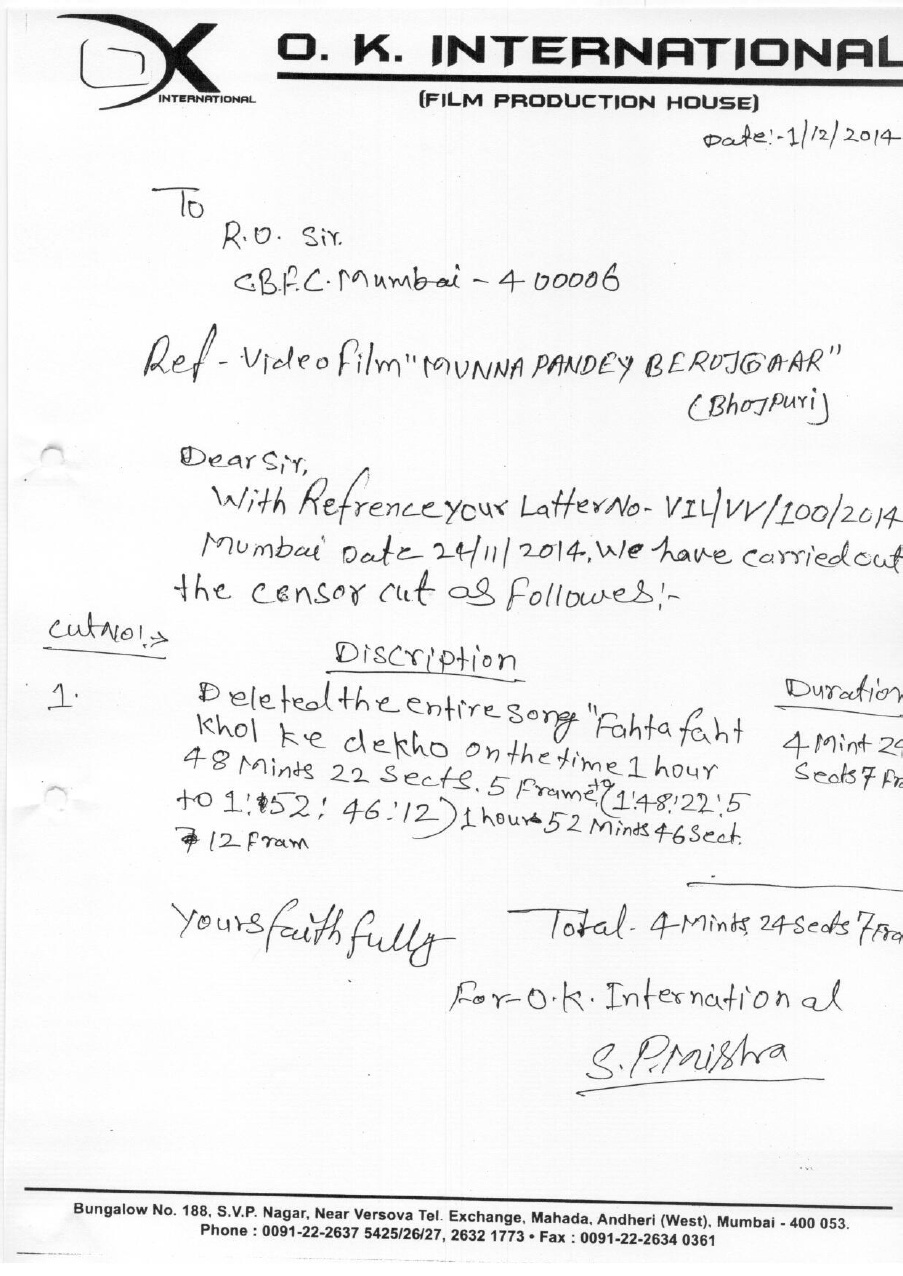 OK INTERNATIONAL
O. K. INTERNATIONAL
(FILM PRODUCTION HOUSE)
Date:-1/12/2014
To
R.O. Sir.
C.B.F.C. Mumbai - 400006
Ref - Video film "MUNNA PANDEY BEROJGAAR"
(Bhojpuri)
Dear Sir,
With Refrence your Latter No- VIL/VV/100/2014
Mumbai Date 24/11/2014, We have carried out
the censor cut as followes:-
Cut No:->
Discription
Duration
1.
Deleted the entire song "Fahtafaht
Khol ke dekho on the time 1 hour
48 Mints 22 Sects. 5 Frame to (1:48:22:5
to 1:52:46:12) 1 hour 52 Mints 46 Sect.
12 Fram
4 Mint 24
Sects 7 Fra
Yours faithfully
Total - 4 Mints, 24 Sects 7 Fra
For-O.K. International
S.P. Mishra
Bungalow No. 188, S.V.P. Nagar, Near Versova Tel. Exchange, Mahada, Andheri (West), Mumbai - 400 053.
Phone : 0091-22-2637 5425/26/27, 2632 1773 • Fax : 0091-22-2634 0361